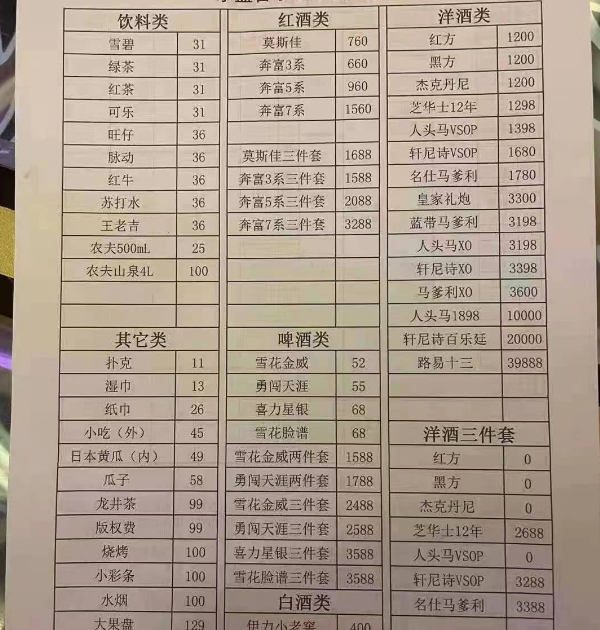 饮料类
雪碧 31
绿茶 31
红茶 31
可乐 31
旺仔 36
脉动 36
红牛 36
苏打水 36
王老吉 36
农夫500mL 25
农夫山泉4L 100
其它类
扑克 11
湿巾 13
纸巾 26
小吃（外） 45
日本黄瓜（内） 49
瓜子 58
龙井茶 99
版权费 99
烧烤 100
小彩条 100
水烟 100
大果盘 129
红酒类
莫斯佳 760
奔富3系 660
奔富5系 960
奔富7系 1560
莫斯佳三件套 1688
奔富3系三件套 1588
奔富5系三件套 2088
奔富7系三件套 3288
啤酒类
雪花金威 52
勇闯天涯 55
喜力星银 68
雪花脸谱 68
雪花金威两件套 1588
勇闯天涯两件套 1788
雪花金威三件套 2488
勇闯天涯三件套 2588
喜力星银三件套 3588
雪花脸谱三件套 3588
白酒类
伊力小老窖 400
洋酒类
红方 1200
黑方 1200
杰克丹尼 1200
芝华士12年 1298
人头马VSOP 1398
轩尼诗VSOP 1680
名仕马爹利 1780
皇家礼炮 3300
蓝带马爹利 3198
人头马XO 3198
轩尼诗XO 3398
马爹利XO 3600
人头马1898 10000
轩尼诗百乐廷 20000
路易十三 39888
洋酒三件套
红方 0
黑方 0
杰克丹尼 0
芝华士12年 2688
人头马VSOP 0
轩尼诗VSOP 3288
名仕马爹利 3388